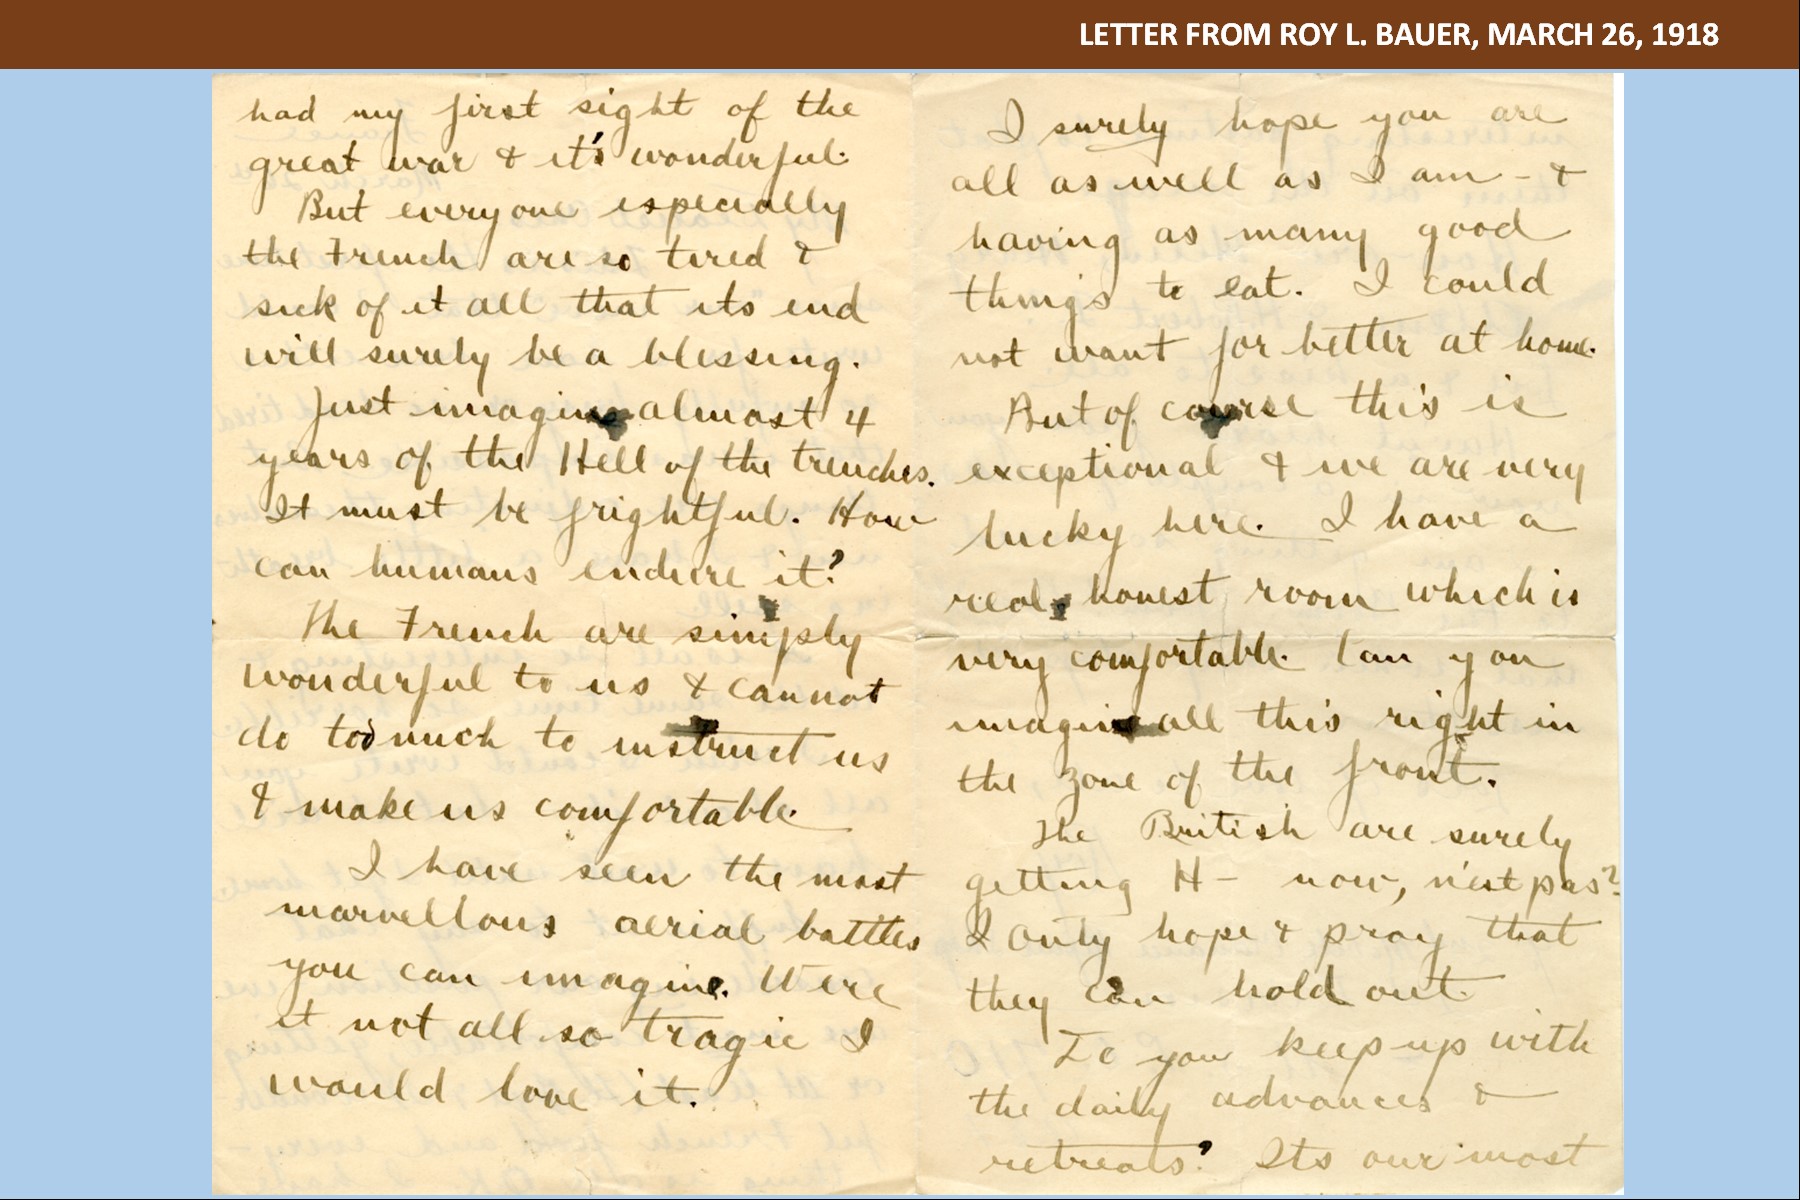 LETTER FROM ROY L. BAUER, MARCH 26, 1918
had my first sight of the
great war & it's wonderful.
But everyone especially
the French are so tired &
sick of it all that its end
will surely be a blessing.
Just imagine almost 4
years of the Hell of the trenches.
It must be frightful. How
can humans endure it?
The French are simply
wonderful to us & cannot
do too much to instruct us
& make us comfortable.
I have seen the most
marvellous aerial battles
you can imagine. Were
it not all so tragic I
would love it.
I surely hope you are
all as well as I am - &
having as many good
things to eat. I could
not want for better at home.
But of course this is
exceptional & we are very
lucky here. I have a
real honest room which is
very comfortable. Can you
imagine all this right in
the zone of the front.
The British are surely
getting H- now, n'est pas?
I only hope & pray that
they can hold out.
Do you keep up with
the daily advances &
retreats? Its our most